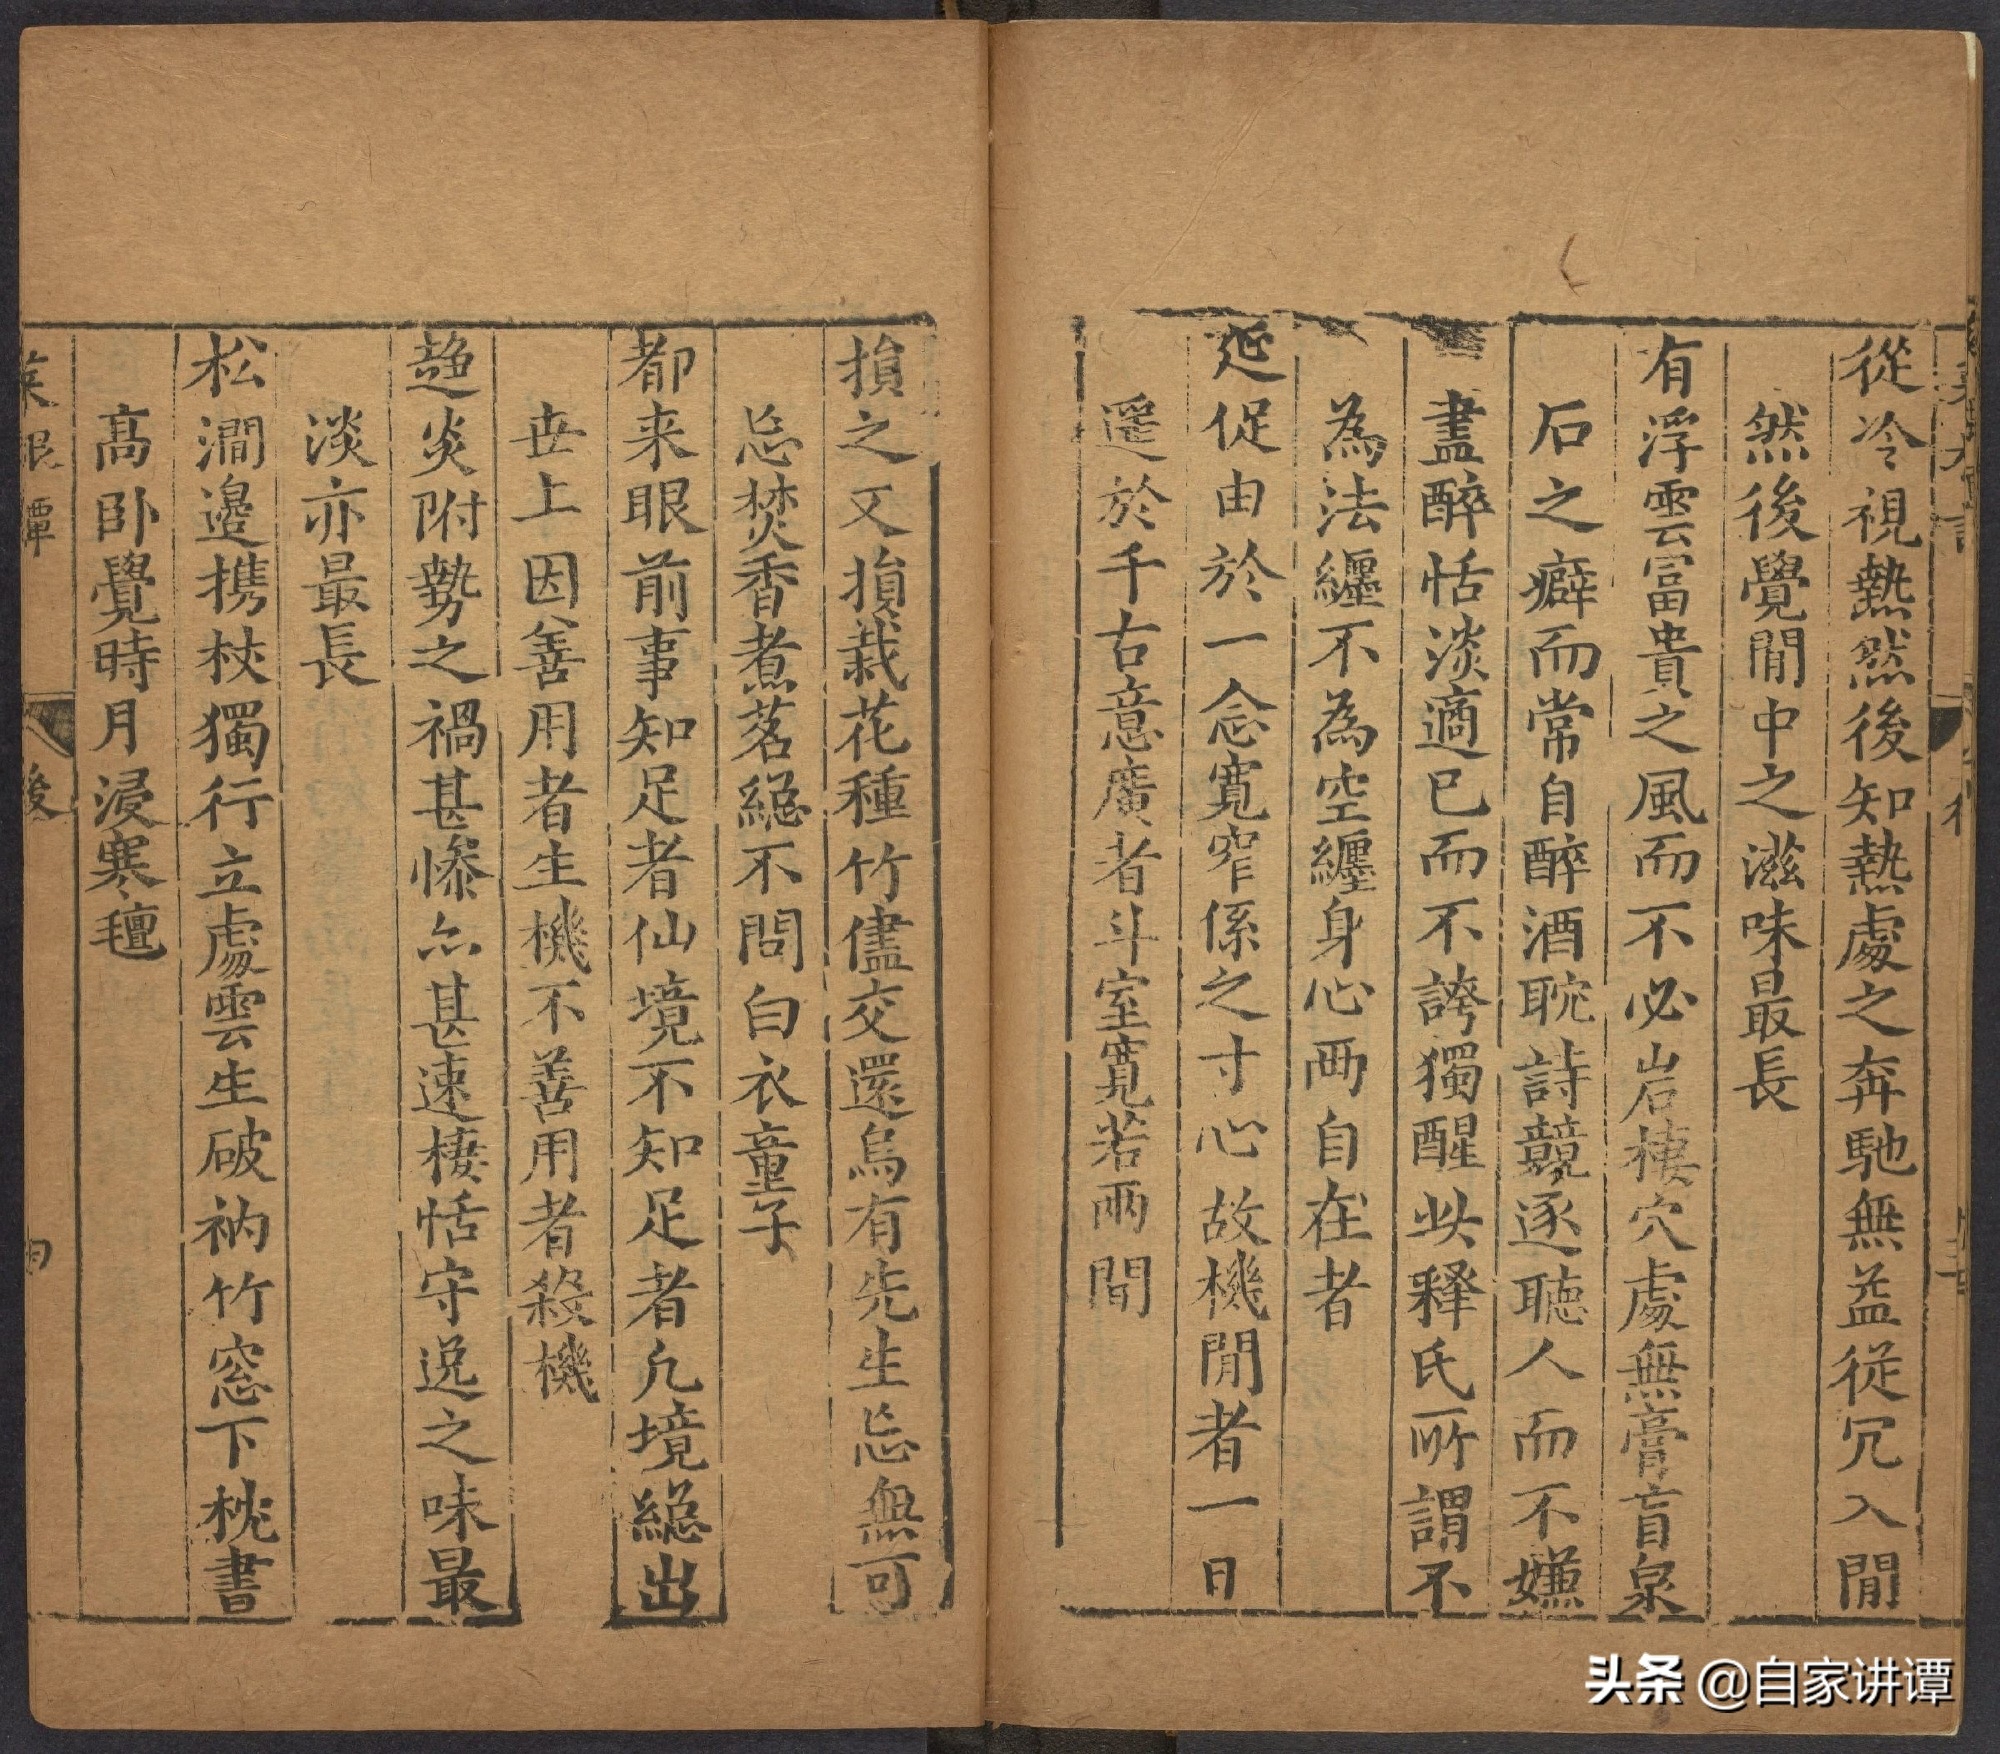 從冷視熱然後知熱處之奔馳無益從冗入閒
然後覺閒中之滋味最長
有浮雲富貴之風而不必岩棲穴處無膏肓泉
石之癖而常自醉酒耽詩競逐聽人而不嫌
盡醉恬淡適已而不誇獨醒此釋氏所謂不
為法纏不為空纏身心兩自在者
延促由於一念寬窄係之寸心故機閒者一日
遥於千古意廣者斗室寬若兩間
損之又損栽花種竹儘交還烏有先生忘無可
忘焚香煮茗縂不問白衣童子
都来眼前事知足者仙境不知足者凢境縂出
世上因善用者生機不善用者殺機
趋炎附勢之禍甚慘亦甚速棲恬守逸之味最
淡亦最長
松澗邉携杖獨行立處雲生破衲竹窓下枕書
髙卧覺時月浸寒氊
菜根譚
後
头条 @自家讲谭